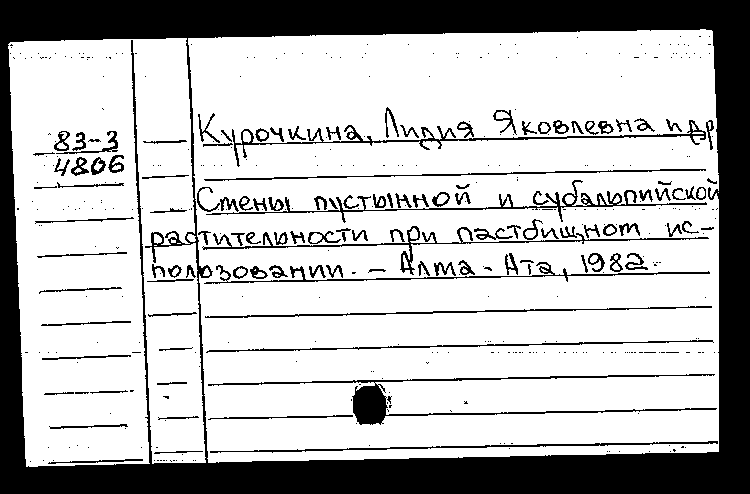 83-3
4806
Курочкина, Лидия Яковлевна и др.
Смены пустынной и субальпийской
растительности при пастбищном ис-
пользовании. - Алма-Ата, 1982.